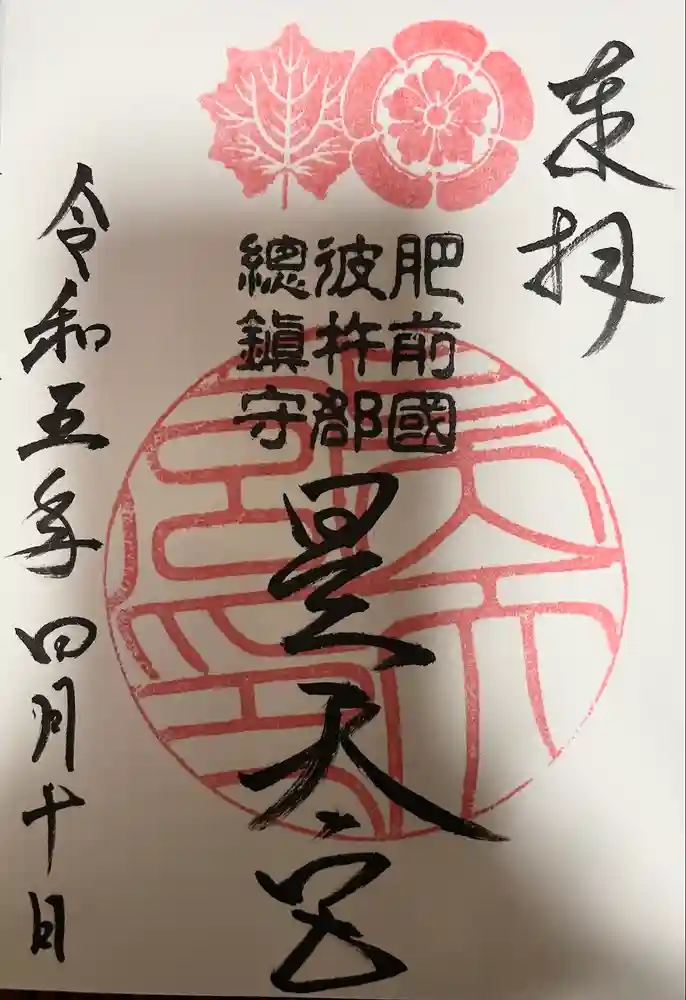 奉拝
肥前國
彼杵郡
總鎮守
昊天宮
令和五年四月十日